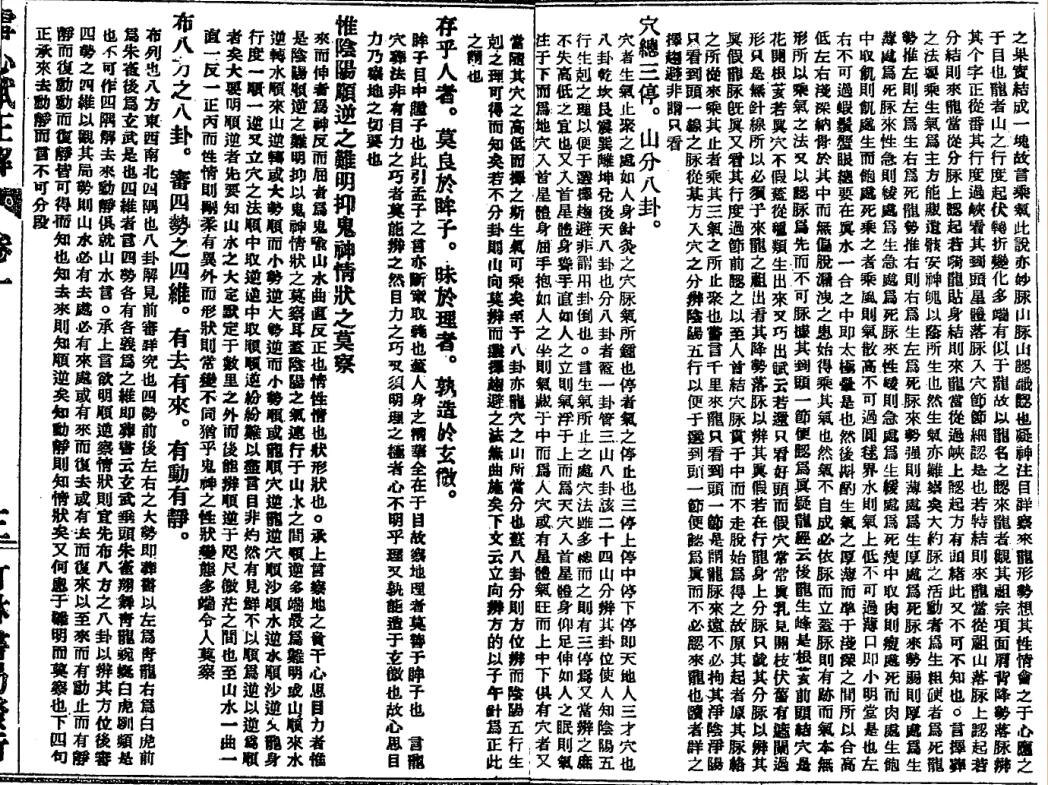 之果實結成一塊故言乘氣此說亦妙脉山脉山認識認也凝神注目詳察來龍形勢想其性情會之于心應之
于目也龍者山之行度起伏轉折變化多端有似于龍故以龍名之來龍者觀其祖宗項面屑背降勢落脉辨
其个字正從番其行度過峽看其到頭星體落脉入穴節節細認是也若特結則來龍當從祖山落脉上認起若
分結則來龍當從分脉上認起若騎龍貼身結則來龍當從過峽上認起方有頭緒此又不可不知也。言擇葬
之法要乘生氣爲主方能觀遺骸安神魄以蔭所生也然生氣亦難察矣大約脉之活動者爲生粗硬者爲死龍
勢推左則左爲生右爲死龍勢推右則右爲生左爲死脉來勢强則薄處爲生厚處爲死脉來勢弱則厚處爲生
薄處爲死脉來性急則緩處爲生急處爲死脉來性緩則急處爲生緩處爲死瘦中取肉則瘦處死而肉處生飽
中取飢則飢處生而飽處死乘之者乘風則氣散高不可過圓毬界水則氣上低不可過薄口即小明堂是也左
右不可過蝦鬚蟹眼總要在眞水一合之中即太極暈是也然後斟酌生氣之厚薄而準于淺深之間所以合高
低左右淺深納骨於其中而無傷脫漏洩之患始得乘其氣也然氣不自成必依脉而立蓋脉則有跡而氣本無
形所以乘氣之法又以認脉爲先而不可脉據其到頭一節便認爲眞疑龍經云後龍生峰是根荄前頭結穴是
花開根荄若眞穴不假蓋從種類生出來又巧出賦云若還只看好頭面假穴常常眞乳見閑枝伏蓄有遮闌過
形只是無針線所以必須乎來龍之祖出看其降勢落脉以辨其眞假若在行龍身上分脉只就其分脉以辨其
眞假龍脉旣眞又看其行度過節前認之以至人首結穴脉貫于中而不走脫始爲得之故原其起者原其脉絡
之所從來乘其止者乘其三氣之所止聚也嘗言千里來龍只看到頭一節是謂龍脉來遠不必拘其淨陰淨陽
只看到頭一線之脉從某方入穴之分辨陰陽五行以便于選到頭一節便認爲眞而不必認來龍也讀者詳之
擇趨避非謂只看
穴總三停。山分八卦。
穴者生氣止聚之處如人身針灸之穴脉氣所鍾也停者氣之停止也三停上停中停下停即天地人三才穴也
八卦乾坎艮震巽離坤兌後天八卦也分八卦者蓋一卦管三山八卦該二十四山分辨其卦位使人知陰陽五
行生剋之理以便于選擇趨避非謂用卦倒也。言生氣所止之處穴法雖多總而之則有三停爲又當辨之庶
不失高低之宜也又入首星體身聳手直如人之立則氣浮于上而爲天穴入首星體身仰足伸如人之眠則氣
注于下而爲地穴入首星體身屈手抱如人之坐則氣藏于中而爲人穴或有星體氣旺而上中下俱有穴者又
當隨其穴之高低而擇之斯生氣可乘矣至于八卦亦龍穴之山所當分也蓋八卦分則方位辨而陰陽五行生
剋之理可得而知矣若不分卦則山向莫辨而選擇趨避之法無曲施矣下文云立向辨方的以子午針爲正此
之謂也
存乎人者。莫良於眸子。昧於理者。孰造於玄微。
眸子目中瞳子也此引孟子之言亦斷章取義也蓋人身之精華全在于目故察地理者莫善于眸子也　言龍
穴葬法非有目力之巧者莫能辨之然目力之巧又須明理之極者心不明乎理又孰能造于玄微也故心思目
力乃察地之切要也
惟陰陽順逆之難明抑鬼神情狀之莫察
來而伸者爲神反而屈者爲鬼喩山水曲直反正也情性情也狀形狀也。承上言察地之貴干心思目力者惟
是陰陽順逆之難明抑以鬼神情狀之莫察耳蓋陰陽之氣運行于山水之間順逆多端最爲難明或山順來水
逆轉水順來山逆轉或大勢順而小勢逆大勢逆而小勢順或龍順穴逆龍逆穴順沙順水逆沙逆水順龍身
行度一順一逆又立穴之法順中取逆逆中取順順逆紛紛難以盡言目非灼然有見鮮不以順爲逆以逆爲順
者矣大要明順逆者先要知山水之大定默定于數里之外而後能辨順逆于咫尺微茫之間也至山水一曲一
直一反一正丙而性情則剛柔有異外而形狀則常變不同猶乎鬼神之性狀變態多端令人莫察
布八方之八卦。審四勢之四維。有去有來。有動有靜。
布列也八方東西南北四隅也八卦解見前審詳究也四勢前後左右之大勢即葬書以左爲靑龍右爲白虎前
爲朱雀後爲玄武是也四維者言四勢各有各義爲之維即葬書云玄武垂頭朱雀翔舞靑龍蜿蜒白虎馴頫是
也不可作四隅解去來動靜俱就山水言。承上言欲明順逆察情狀則宜先布八方之八卦以辨其方位後審
四勢之四維以觀其局勢則山水必有去處必有來處或有來而復去或有去而復來以至來而有動止而有靜
靜而復動動而復靜皆可得而知也知去來則知順逆矣知動靜則知情狀矣又何患于難明而莫察也下四句
正承來去動靜而言不可分段
雪心賦正解　卷一　三一　竹林書局發行